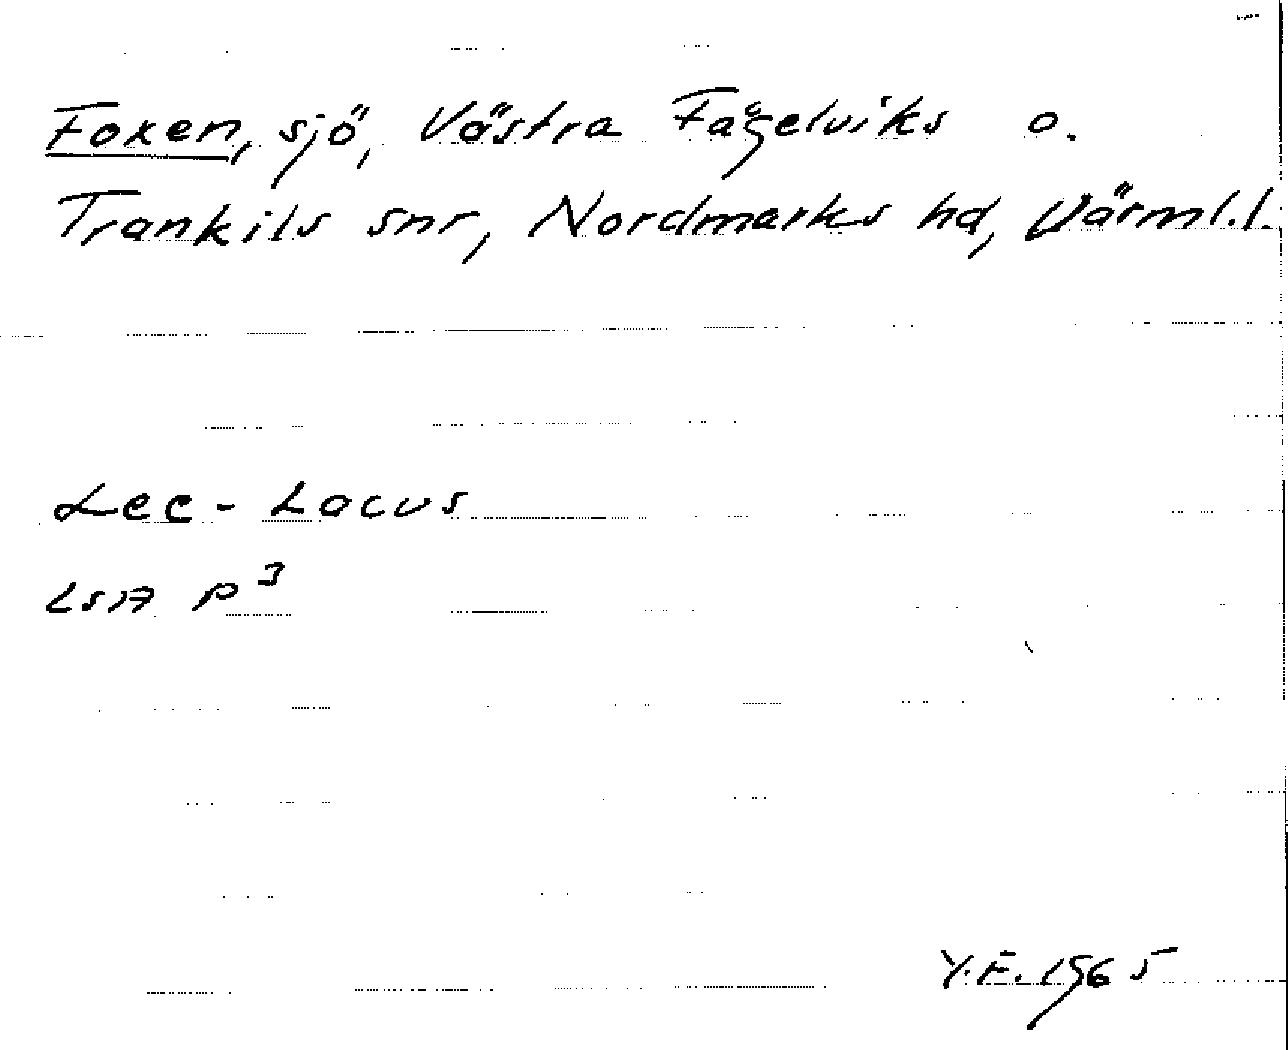 Foxen, sjö, Västra Fågelviks o.
Trankils snr, Nordmarks hd, Värml.l.
Lee - Lacus
LSA P³
Y.E. 1965